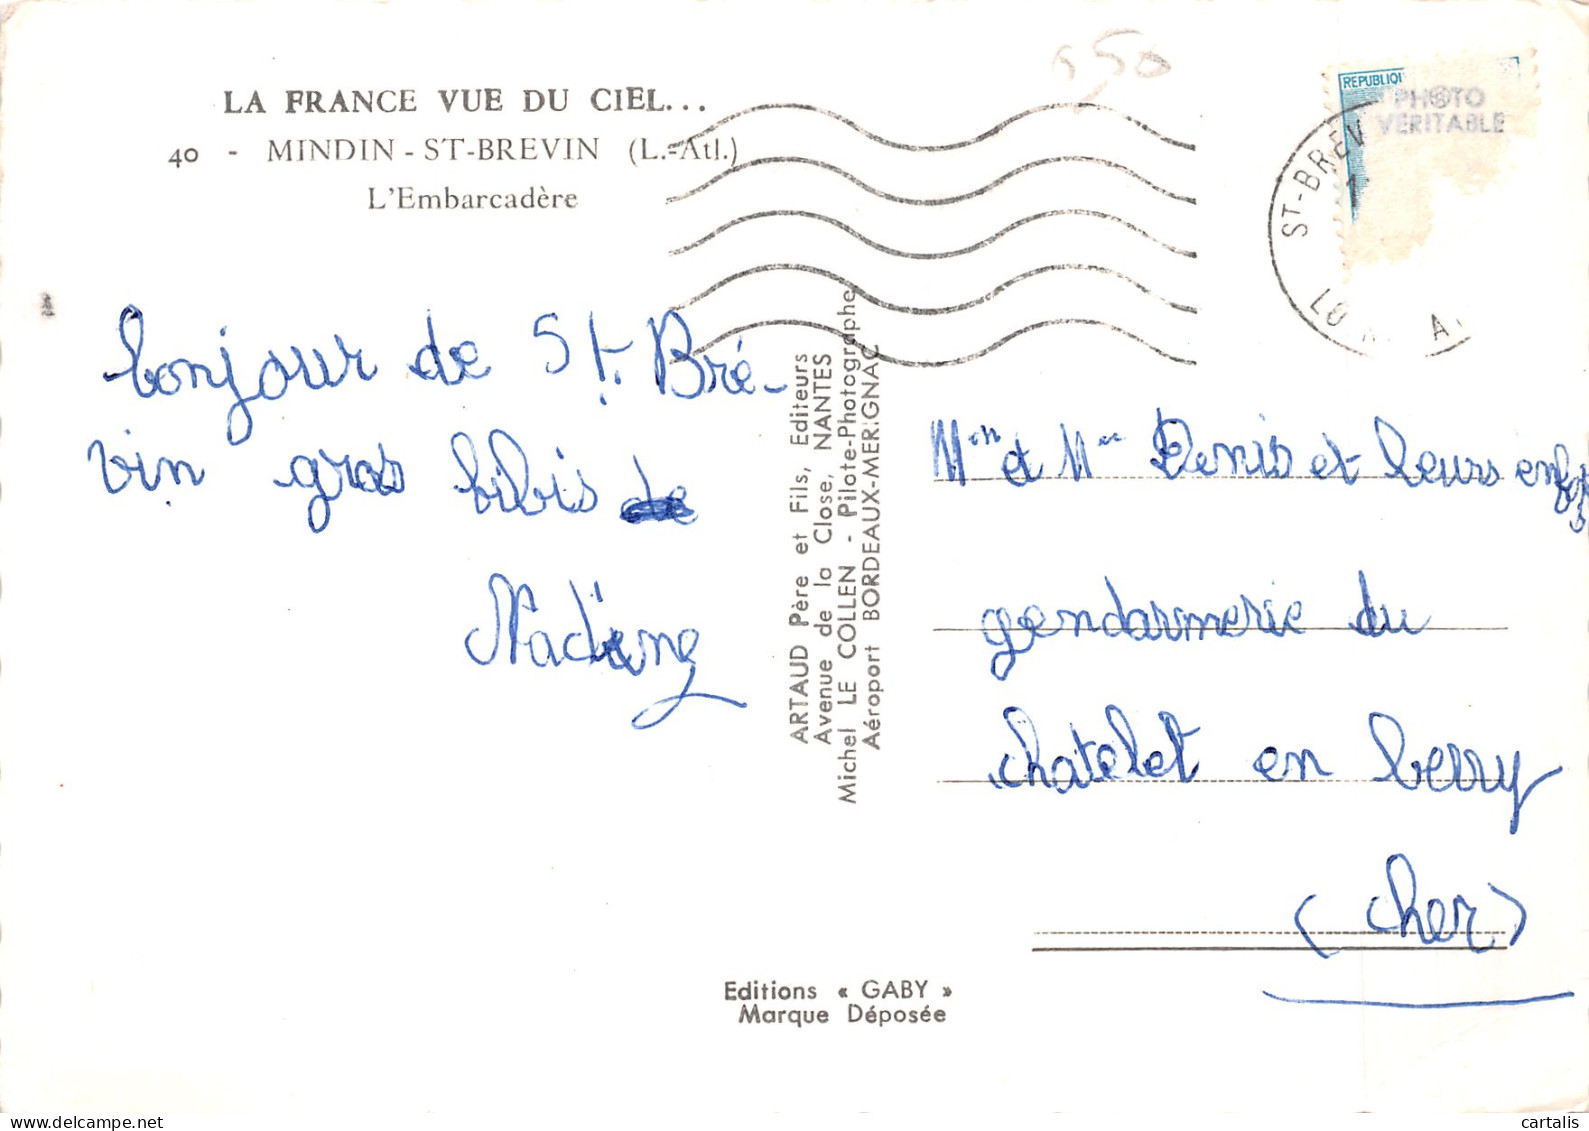 LA FRANCE VUE DU CIEL...
40 - MINDIN - ST-BREVIN (L.-Atl.)
L'Embarcadère
350
REPUBLIQ
PHOTO
VERITABLE
ST-BREV
LO A
bonjour de St. Bré-
vin gros bibis de
Nadèng
ARTAUD Père et Fils, Editeurs
Avenue de la Close, NANTES
Michel LE COLLEN - Pilote-Photographe
Aéroport BORDEAUX-MERIGNAC
et Denis et leurs enf
gendarmerie du
chatelet en berry
(cher)
Editions « GABY »
Marque Déposée
cartalis
delcampe.net